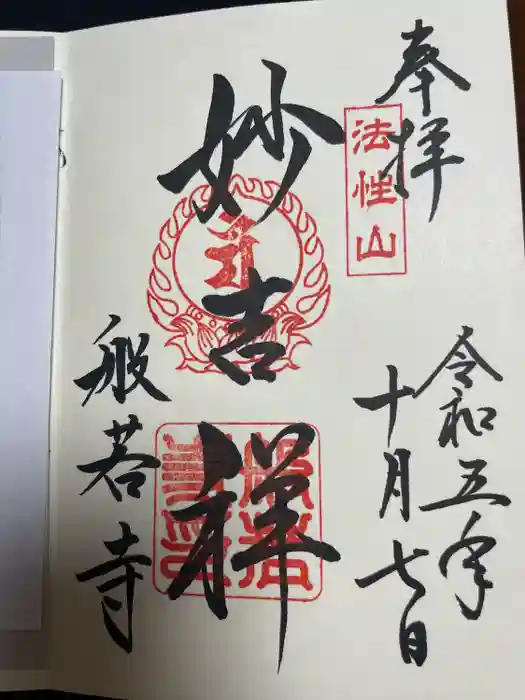 奉拝
法性山
令和五年
十月七日
妙吉祥
般若寺